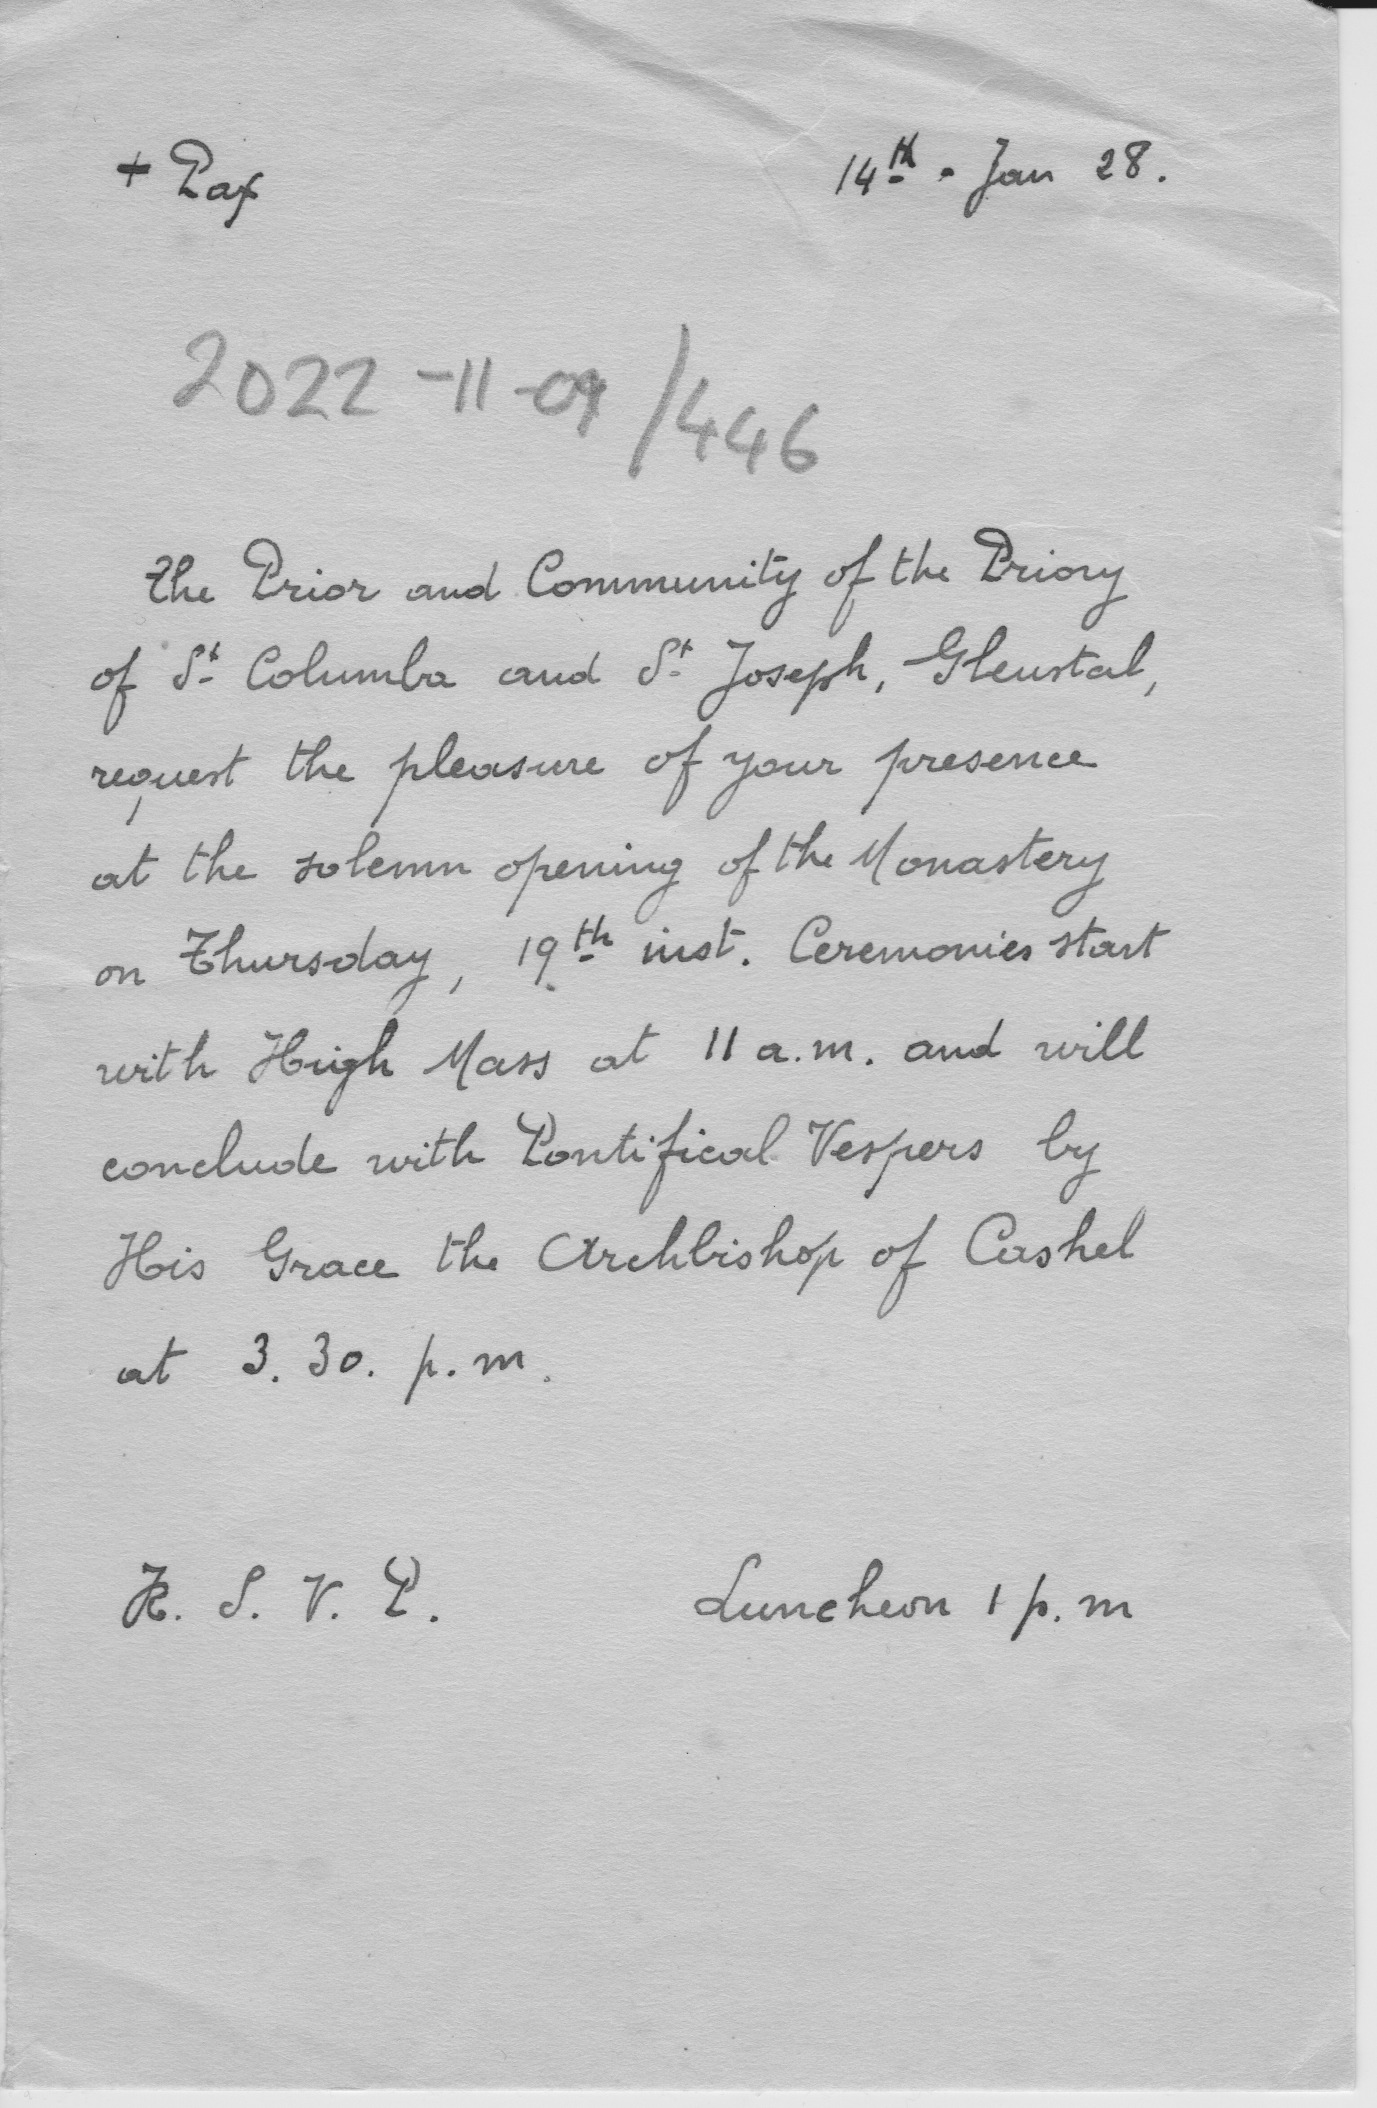 + Pax 14th. Jan 28.
2022-11-09/446
The Prior and Community of the Priory
of St. Columba and St. Joseph, Glenstal,
request the pleasure of your presence
at the solemn opening of the Monastery
on Thursday, 19th inst. Ceremonies start
with High Mass at 11 a.m. and will
conclude with Pontifical Vespers by
His Grace the Archbishop of Cashel
at 3.30. p.m.
R. S. V. P. Luncheon 1 p.m